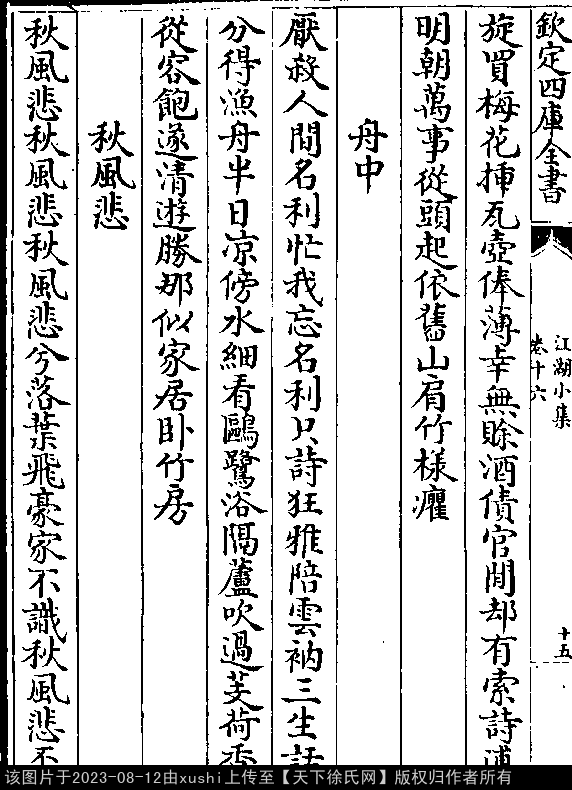 欽定四庫全書
江湖小集
卷十六
十五
旋買梅花揷瓦壺俸薄幸無賖酒債官閒却有索詩
明朝萬事從頭起依舊山肩竹様癯
舟中
厭殺人間名利忙我忘名利只詩狂雅陪雲衲三生話
分得漁舟半日凉傍水細看鷗鷺浴隔蘆吹過芰荷香
從容飽遂清遊勝那似家居卧竹房
秋風悲
秋風悲秋風悲秋風悲兮落葉飛豪家不識秋風悲不
该图片于2023-08-12由xushi上传至【天下徐氏网】版权归作者所有